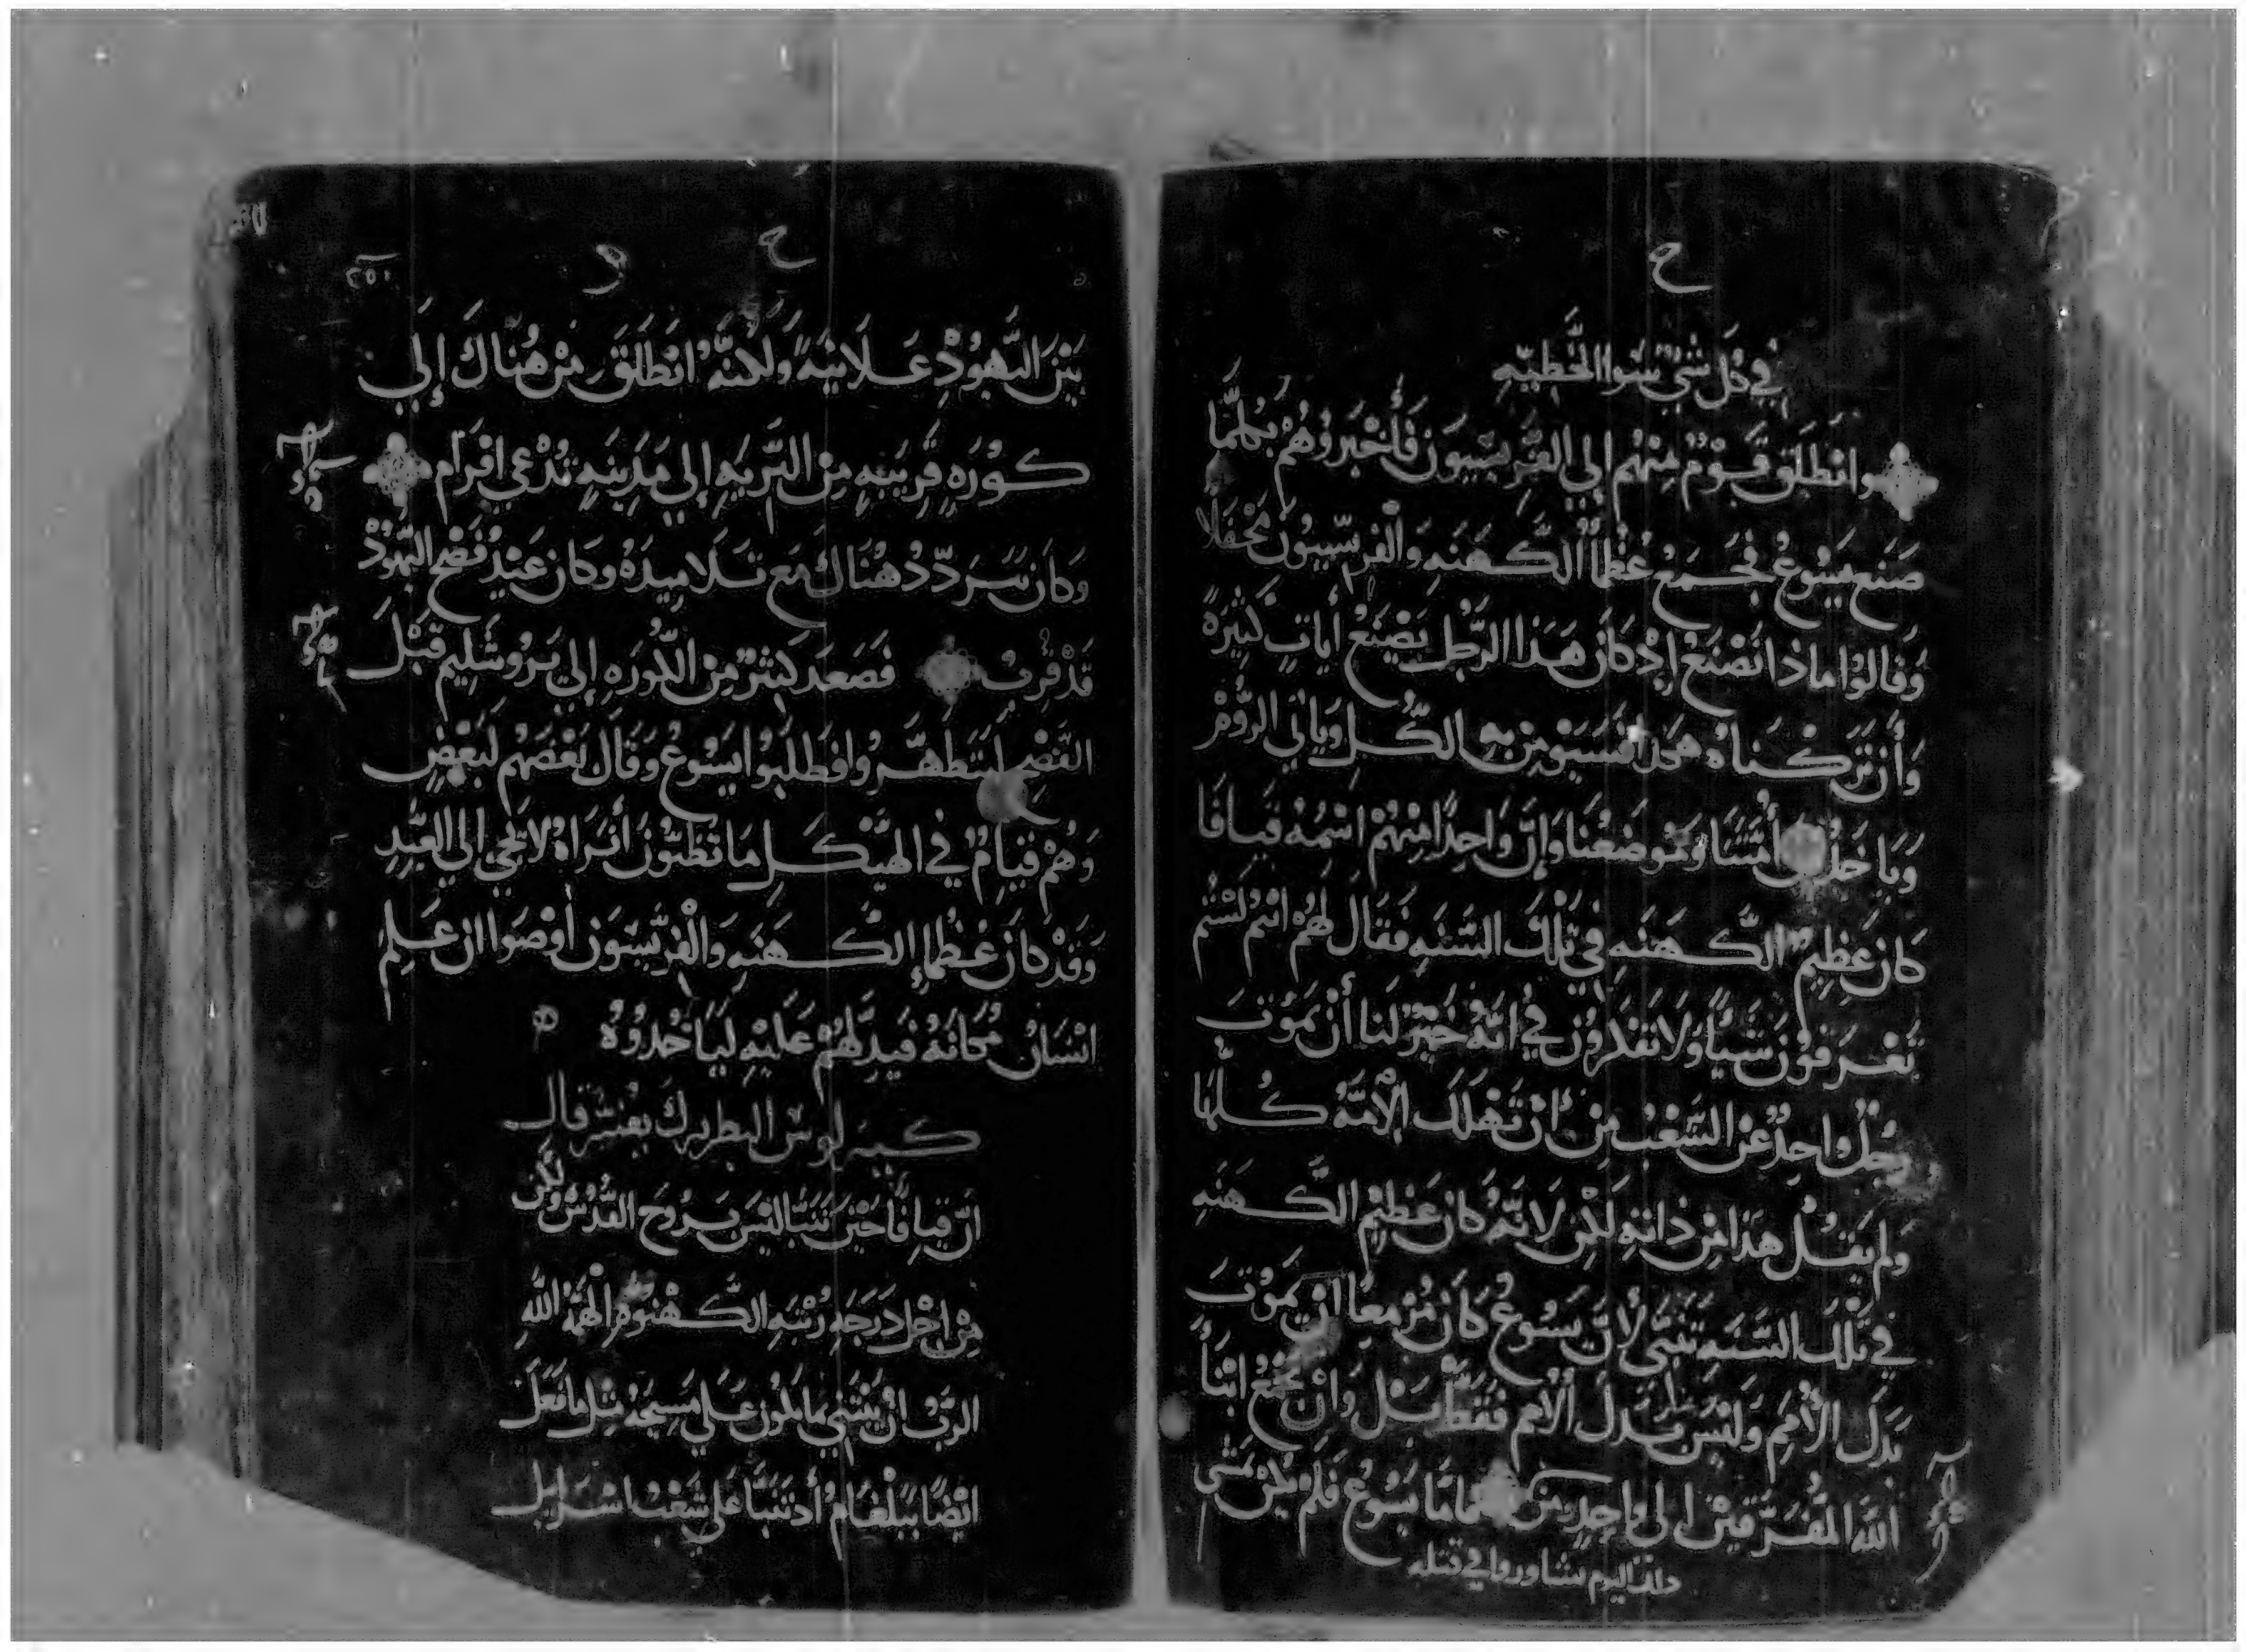 ح
في كل شي سوا الخطيه
وانطلق قوم منهم إلي الفريسيون فأخبروهم بكلما
صنع يسوع فجمع عظما الكهنه والفريسيون محفلا
وقالوا ماذا نصنع إذ كان هذا الرجل يصنع أيات كثيره
وأن تركناه هكذا فسيومن به الكل وياتي الروم
وياخذون أمتنا وموضعنا وإن واحدا منهم اسمه قيافا
كان عظيم الكهنه في تلك السنه فقال لهم انتم لستم
تعرفون شيا ولا تفكرون في انه خير لنا أن يموت
رجل واحد عن الشعب من أن تهلك الأمه كلها
ولم يقل هذا من ذاته لكن لانه كان عظيم الكهنه
في تلك السنه تنبى لأن يسوع كان مزمعا ان يموت
بدل الأمم وليس بدل الأمم فقط بل وان يجمع ابنا
الله المفرقين الى واحد فاما يسوع فلم يكن يمشي
ذلك اليوم تشاوروا في قتله
ح
بين اليهود علانيه ولكنه انطلق من هناك إلي
كوره قريبه من البريه إلي مدينه تدعي افرام
وكان يتردد هناك مع تلاميده وكان عيد فصح اليهود
قد قرب فصعد كثير من الكوره إلي يروشليم قبل
الفصح ليتطهروا فطلبوا يسوع وقال بعضهم لبعض
وهم قيام في الهيكل ما تظنون أتراه لا يجي الي العيد
وقد كان عظما الكهنه والفريسيون أوصوا ان علم
انسان مكانه فيدلهم عليه لياخدوه
كيرلوس البطريرك يفسر قال
ان قيافا حين تنبا ليس بروح القدس ولكن
من اجل درجه رتبه الكهنوه الهمه الله
الرب ان يفتي بما يكون علي مسيحه مثل ما فعل
ايضا ببلعام أد تنبا علي شعب اسرايل